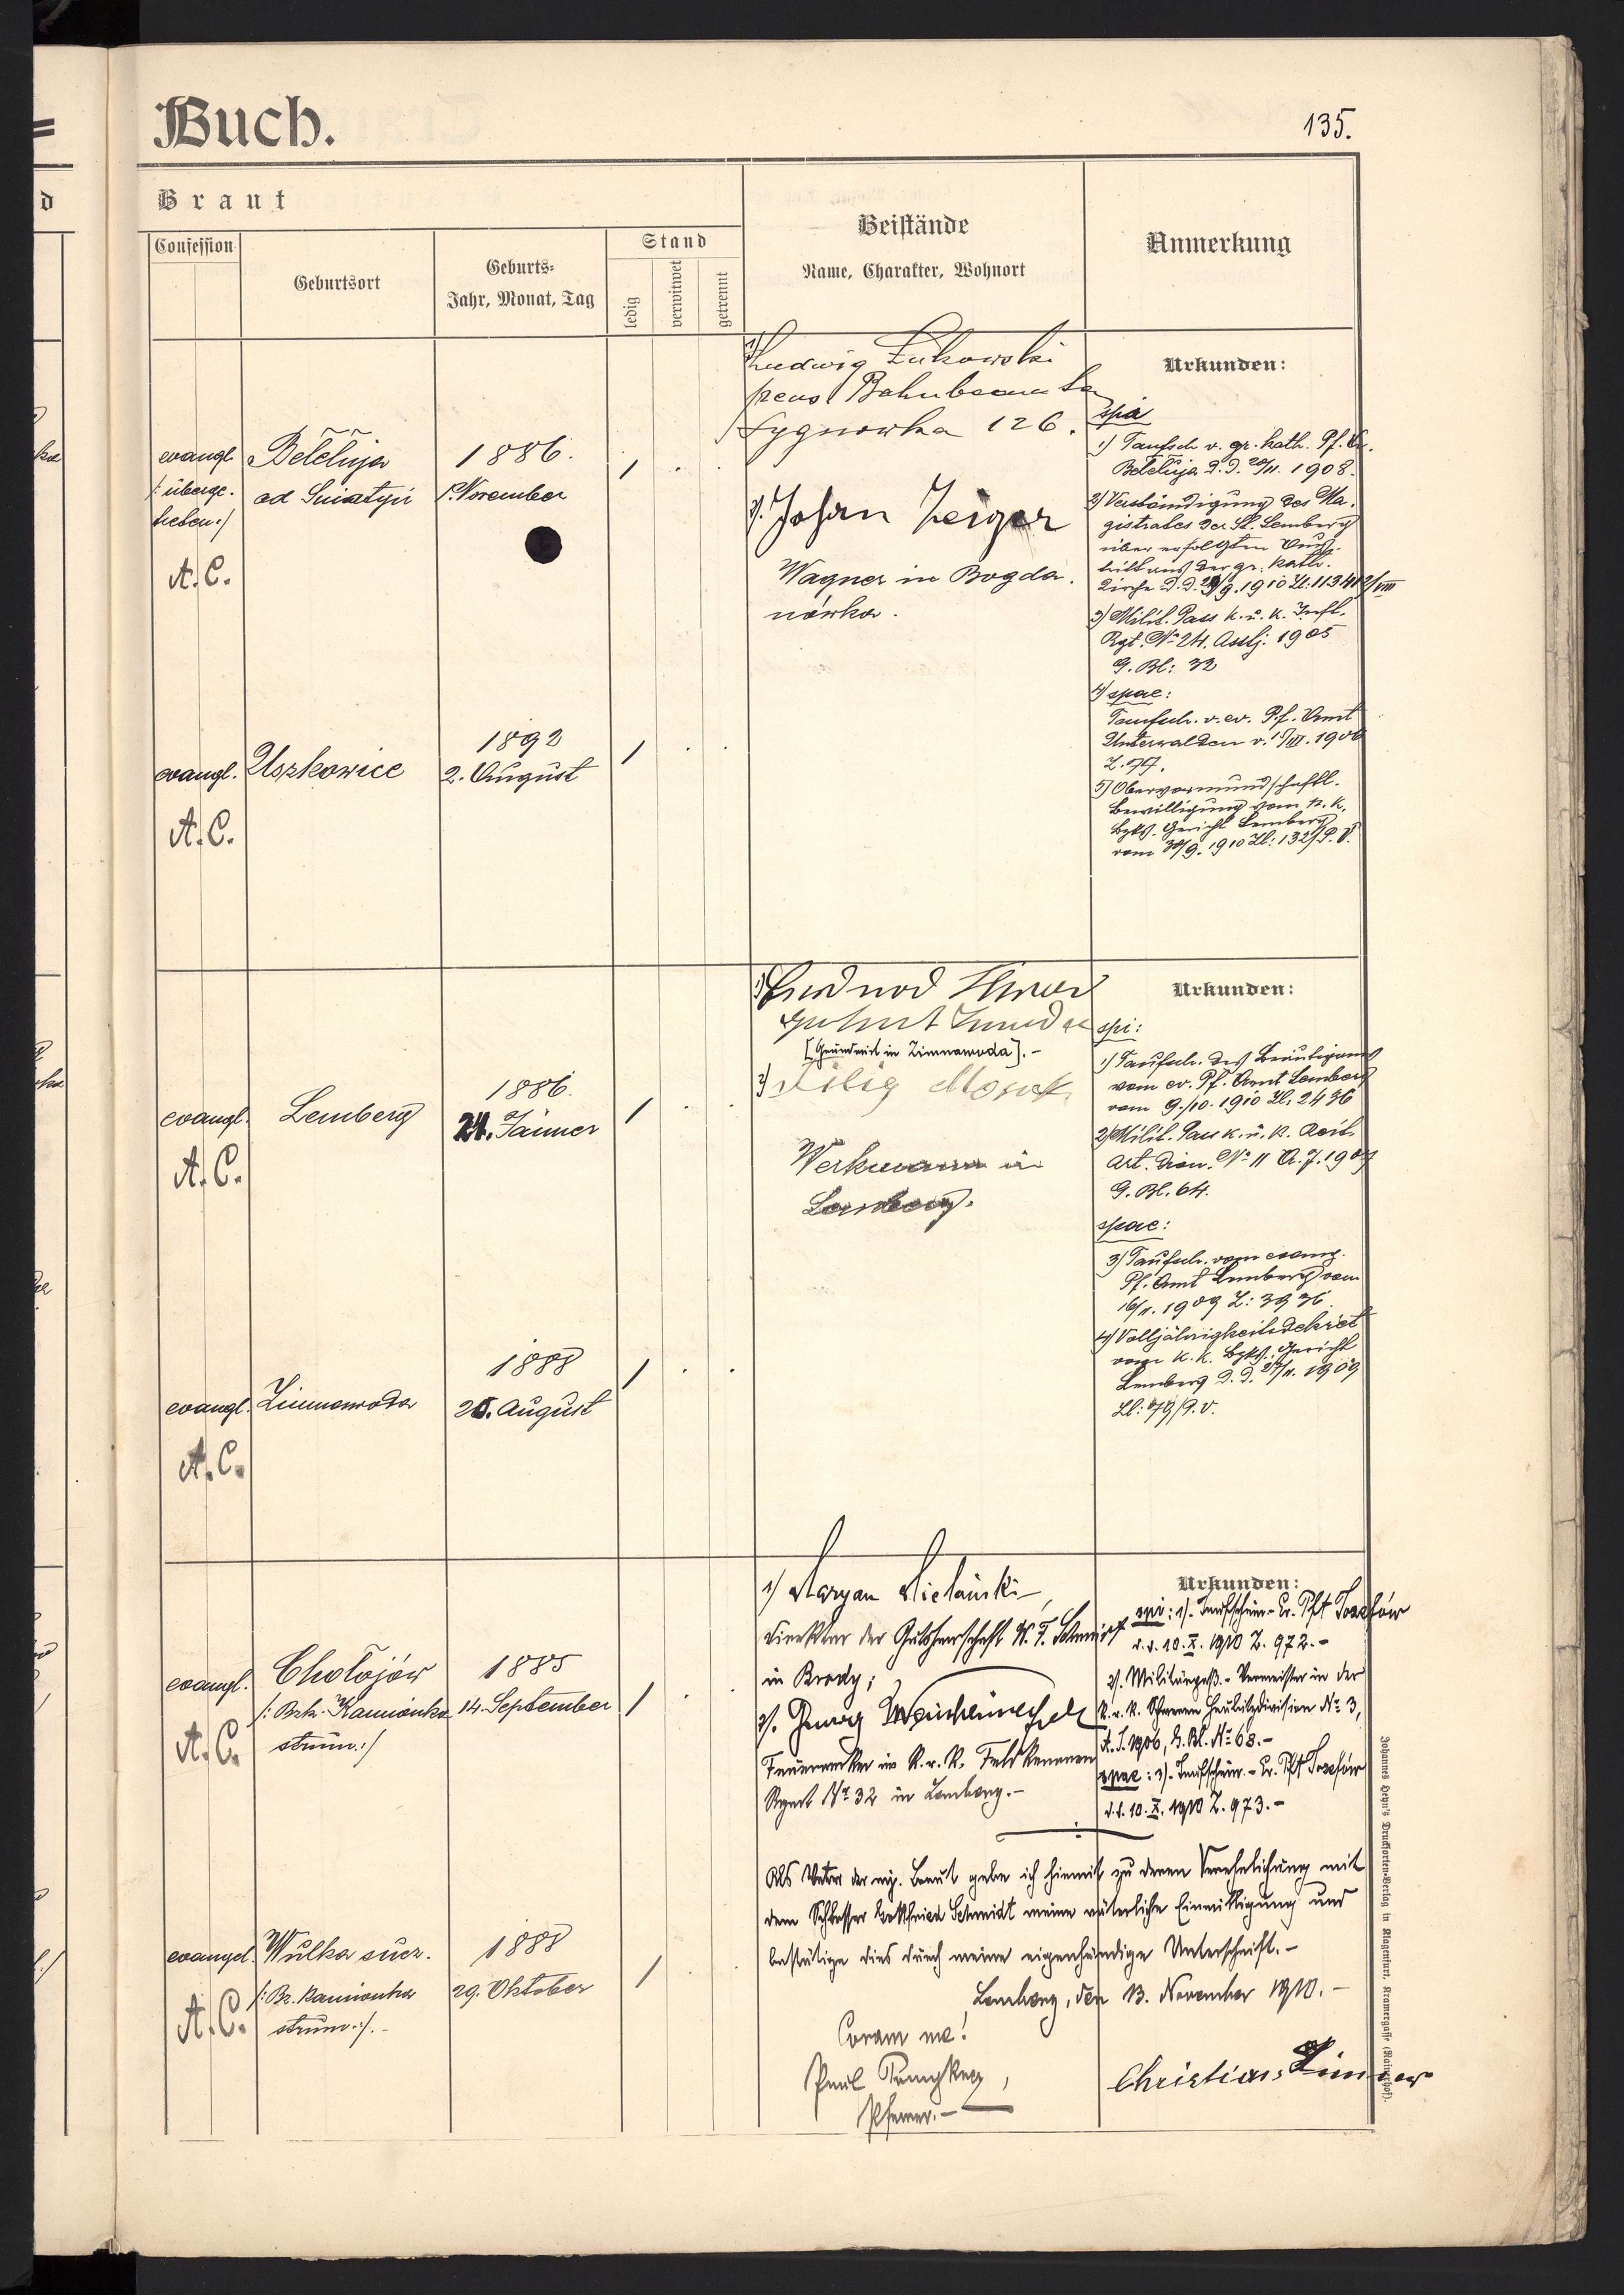 Buch.
135.
Braut
Confession
Geburtsort
Geburts-
Jahr, Monat, Tag
Stand
ledig
verwitwet
getrennt
Beistände
Name, Charakter, Wohnort
Anmerkung
evangl.
/: überge-
treten :/
A. C.
Bełełuja
ad Sniatyń
1886.
1. November
1) Ludwig Łukowski
pens. Bahnbeamte
Sygnowka 126.
2). Johan Zeiger
Wagner in Bogda-
nówka.
Urkunden:
1) Taufsch. v. gr. kath. Pf.
Bełełuja d. d. 20/11. 1908.
2) Verständigung des Ma-
gistrates der St. Lemberg
über erfolgten Aus-
tritt aus der gr. kath.
Kirche d. d. 9. 1910
3) Milit. Pass k. u. k. Inft.
Rgt. No 24. Asstj. 1905
G. Bl: 32
4) spae:
Taufsch. v. ev. Pf. Amt
Unterwalden v. 1906
Z. 77.
5) Obervormundschaftl.
Bewilligung vom k. k.
Bzks. Gericht Lemberg
vom 30/9. 1910 Zl: 132/P. V.
evangl.
A. C.
Uszkowice
1892
2. August
evangl.
A. C.
Lemberg
1886.
24. Jänner
[Grundwirt in Zimnawoda]. -
2)
Werkmann in
Lemberg.
Urkunden:
spi:
1) Taufsch. des Bräutigams
vom ev. Pf. Amt Lemberg
vom 9./10. 1910 Zl. 2436
2) Milit. Pass k. u. k. Reit.
Art. Dion. No 11 A. J. 1907
G. Bl. 64.
spae:
3) Taufsch. vom evang.
Pf. Amt Lemberg vom
16/11. 1909 Z: 3936.
4) Volljährigkeitsdekret
vom k. k. Bzks. Gericht
Lemberg d. d. 27/11. 1909
Zl: 79/P. V.
evangl.
A. C.
Zimnawoda
1888
25. August
evangl.
A. C.
Chołojów
/: Bzk. Kamionka
strum. :/
1885
14. September
1) Maryan Zielański
Direktor der Gutsherrschaft W. F. Schmidt
in Brody;
2). Georg
Feuerwerker im k. u. k. Feldkanonen
Regmt No 32 in Lemberg. -
Urkunden:
spi: 1). Taufschein - Ev. Pft Józefów
d. d. 10. X. 1910 Z. 972. -
2). Militärpaß. - Vormeister in der
k. u. k. Schweren Haubitzdivision No 3,
A. J. 1906, G. Bl. No 68. -
spae: 3). Taufschein. - Ev. Pft Józefów
d. d. 10. X. 1910 Z. 973. -
Als Vater der mj. Braut gebe ich hiemit zu deren Verehelichung mit
dem Schlosser Gottfried Schmidt meine väterliche Einwilligung und
bestätige dies durch meine eigenhändige Unterschrift. -
Lemberg, den 13. November 1910. -
evangel.
A. C.
Wulka susz.
/: Bz. Kamionka
strum. :/. -
1888
29. Oktober
Coram me!
Paul
Pfarrer. -
Christian Zimmer
Johannes Heyn's Drucksorten-Verlag in Klagenfurt, Kramergasse (Rainerhof).